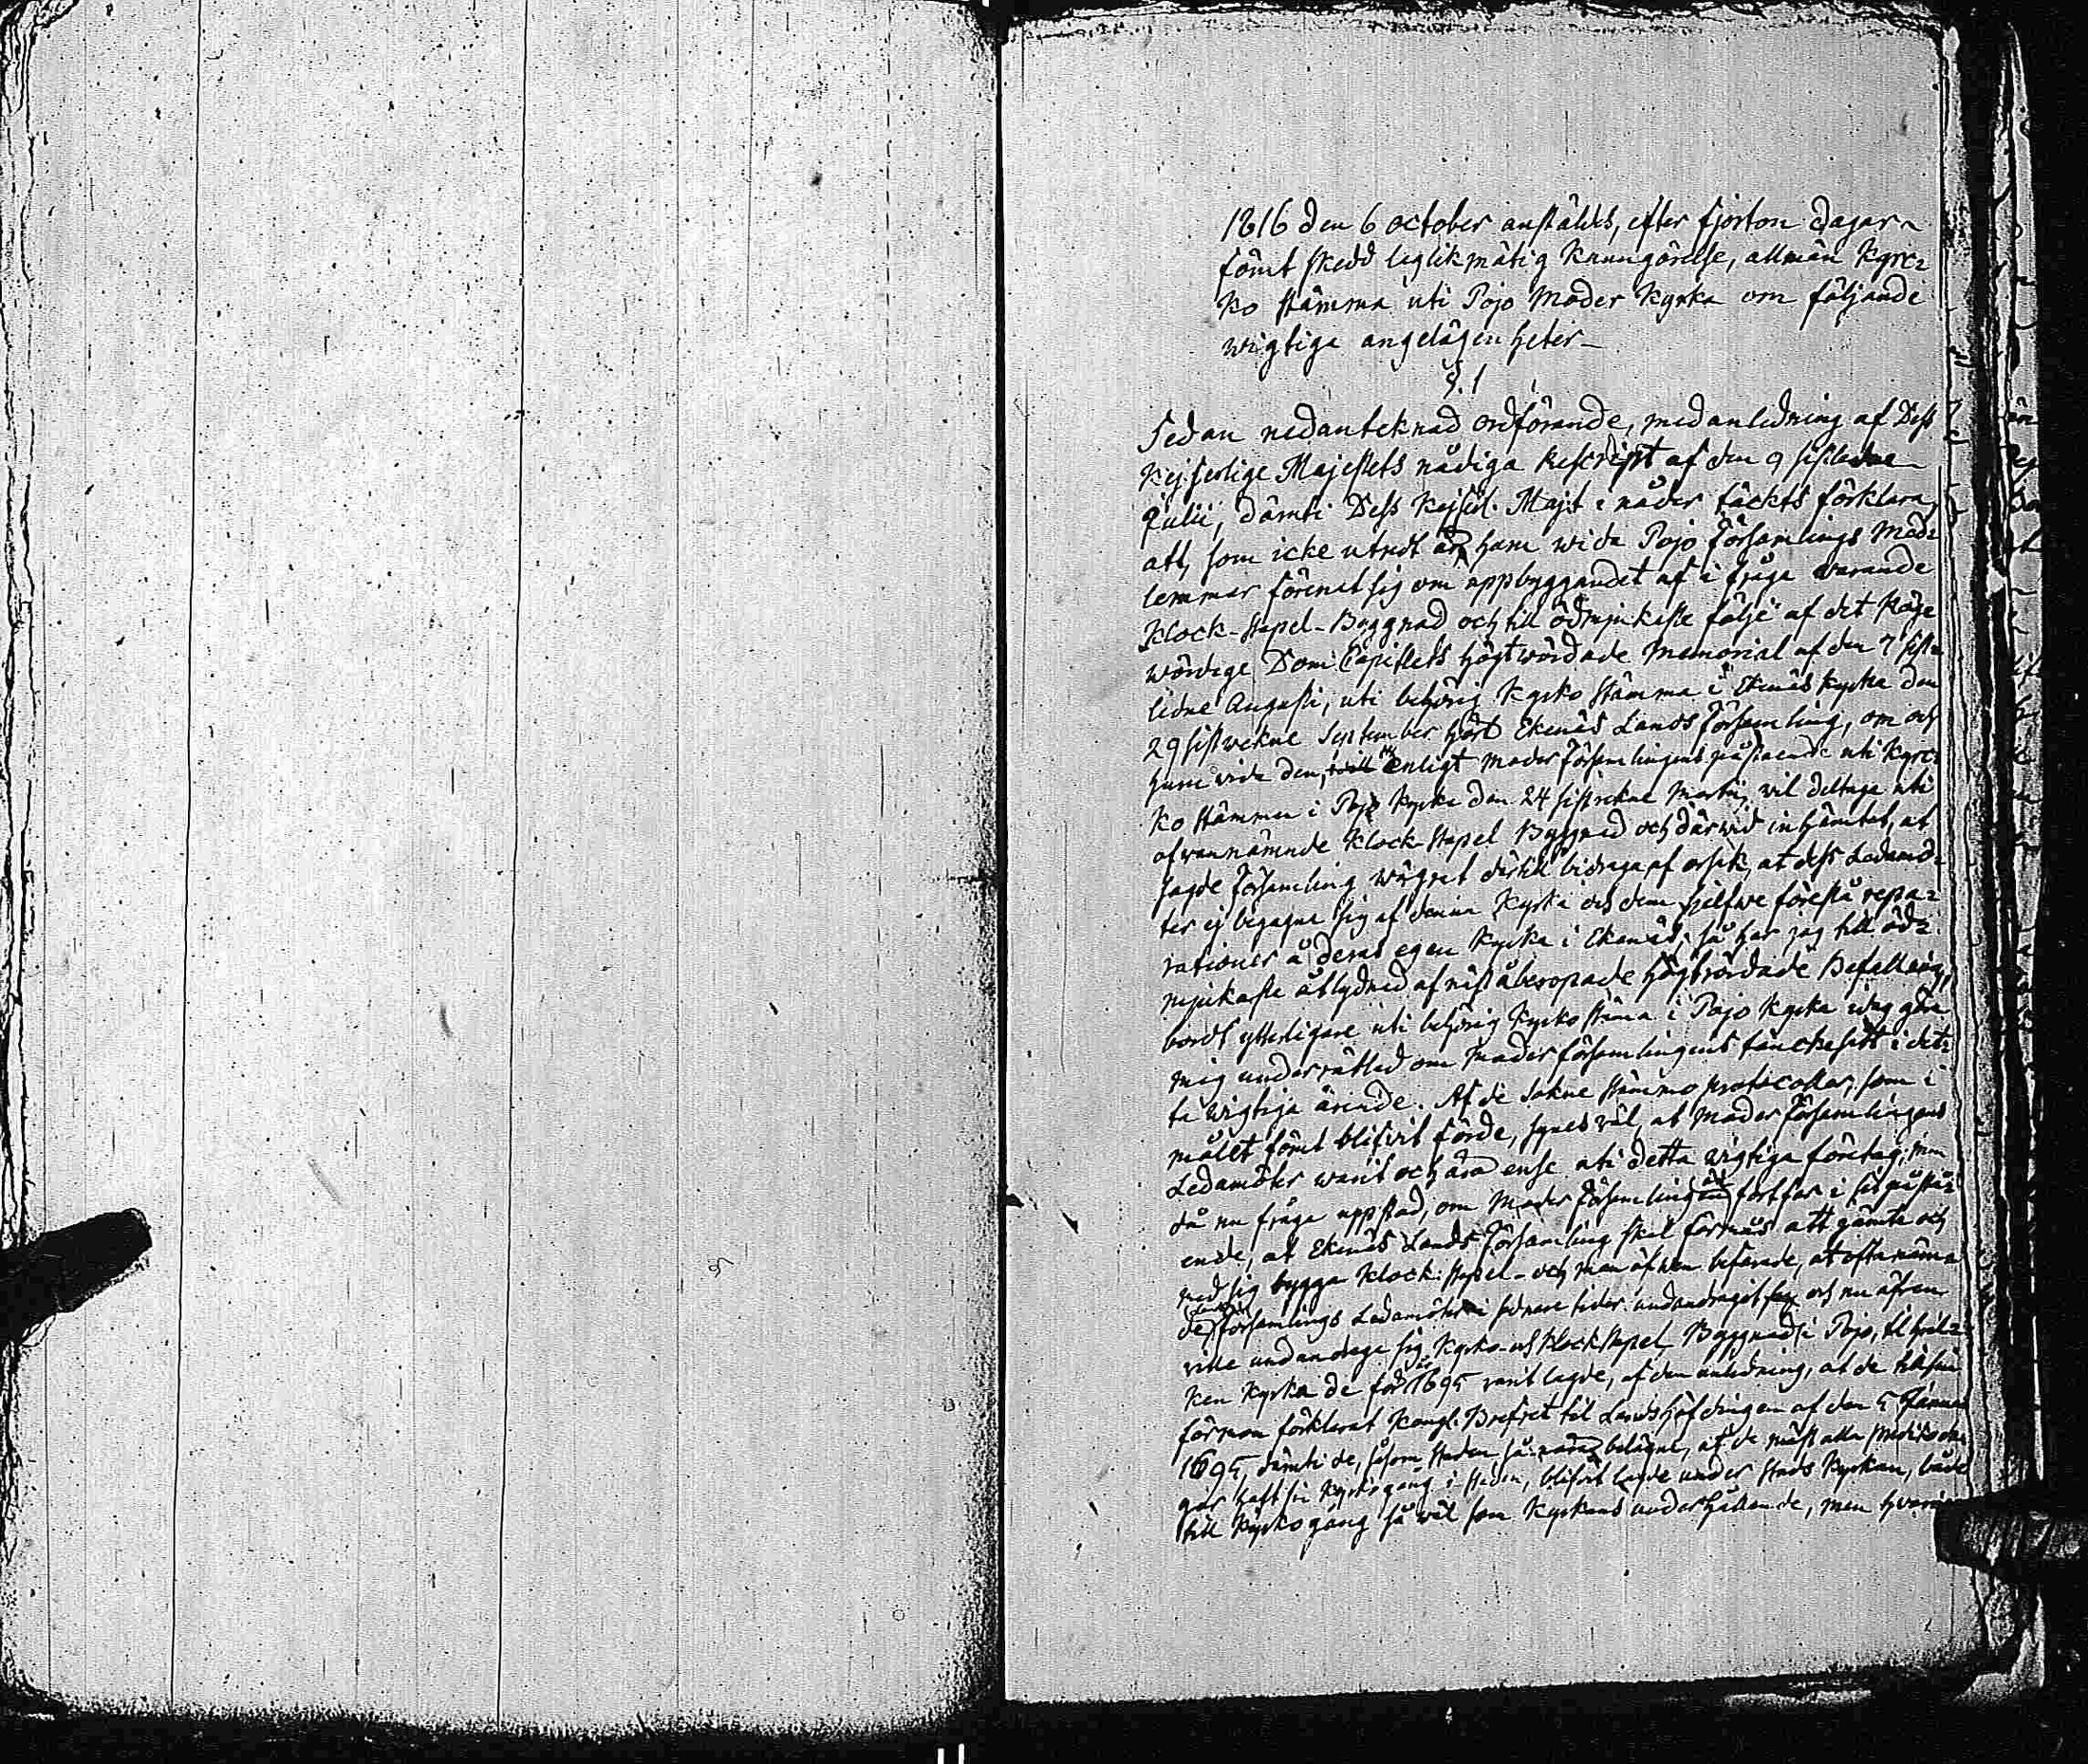 1816 den 6 october anstäldes, efter fjorton dagar
förut skedd laglikmätig Kunngörelse, allmän Kyrc-
ko stämma uti Pojo Moder Kyrka om följande
wigtiga angelägenheter
§. 1
Sedan nedanteknad ordförande, med anledning af Dess
Kejserlige Majestets nådiga Rescript af den 9 sistledne
Julii, däruti Dess Kejserl. Maj:t i nåder täckts förklara,
att, som icke utredt är, huru wida Pojo Församlings Med-
lemmar förenat sig om uppbyggandet af i fråga warande
Klock-stapel-Byggnad och till ödmjukaste följe af det Höge
wördige Dom Capitlets högtwördade Memorial af den 7 sist-
lidne Augusti, uti behörig Kyrko stämma i Ekenäs Kyrka den
29 sistwekne September hört Ekenäs Lands Församling, om och
huru vida den, enligt Moder församlingens påstående uti Kyrc-
ko stämman i Pojo Kyrka den 24 sistwekne Martii, vil deltaga uti
ofwannämnde Klock-stapel Byggnad och därwid inhämtat, at
sagde Församling wägrat dertil bidraga af orsak, at dess Ledamö-
ter ej begagna sig af denna Kyrka och dem sjelfwe förestå repa-
rationer å deras egen Kyrka i Ekenäs; så har jag till öd-
mjukaste åtlydnad af näst åberopade högtwördade Befallning,
bordt ytterligare uti behörig Kyrko stäma i Pojo Kyrka
mig underrättad om Moder församlingens tänckesätt i det-
ta wigtiga ärende. Af de Sokne stämmo protocoller, som i
målet förut blifvit förde, synes väl, at Moder Församlingens
Ledamöter warit och äro ense uti detta wigtiga företag; men
då nu fråga uppstod, om Moder Församlingen fortfar i sit påstå-
ende, at Ekenäs Lands Församling skal förmås att jämte och
med sig bygga Klock-stapel - och man äfwen befarade, at oftanämn-
de Församlings Ledamöter i sednare tider undandragit sig och nu äfven
ville undandraga sig Kyrko- och Klockstapel Byggnad i Pojo, til hvil-
ken Kyrka de för 1695 varit lagde, af den anledning, at de
förmon förklarat Kongl. Brefvet til Landshöfdingen af den 5 Januar
1695, däruti de, såsom staden så nära belägne, at de mäst alla predikoda-
gar haft sin Kyrkogång i staden, blifvit lagde under Stads Kyrkan, både
till Kyrkogång så väl som Kyrkans underhållande, men